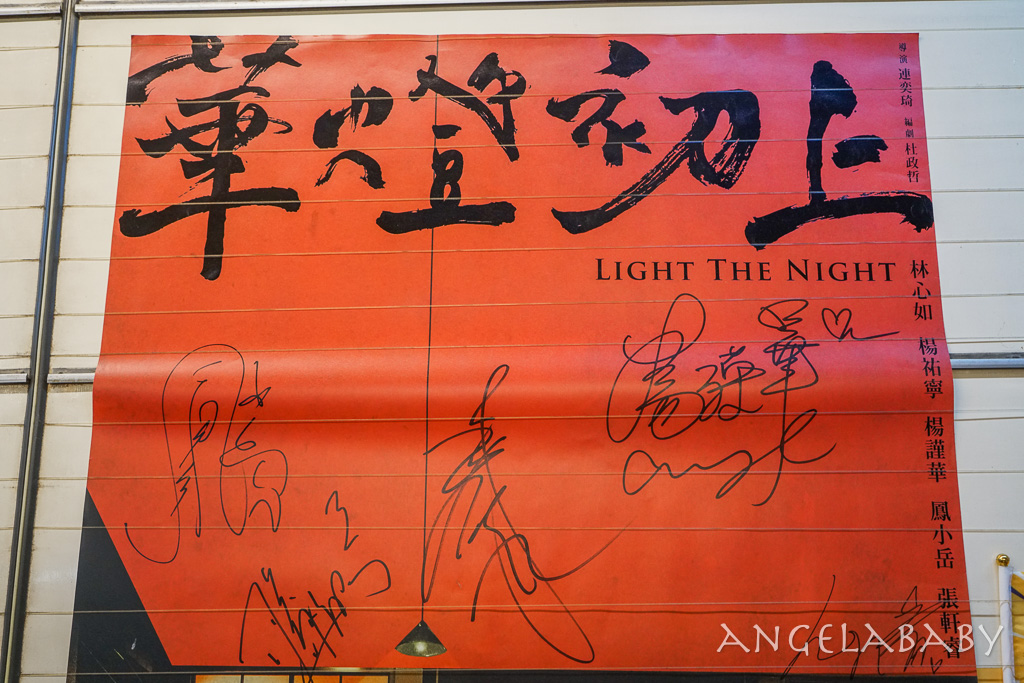 華燈初上
LIGHT THE NIGHT
導演 連奕琦 編劇 杜政哲
林心如 楊祐寧 楊謹華 鳳小岳 張軒睿
ANGELABABY